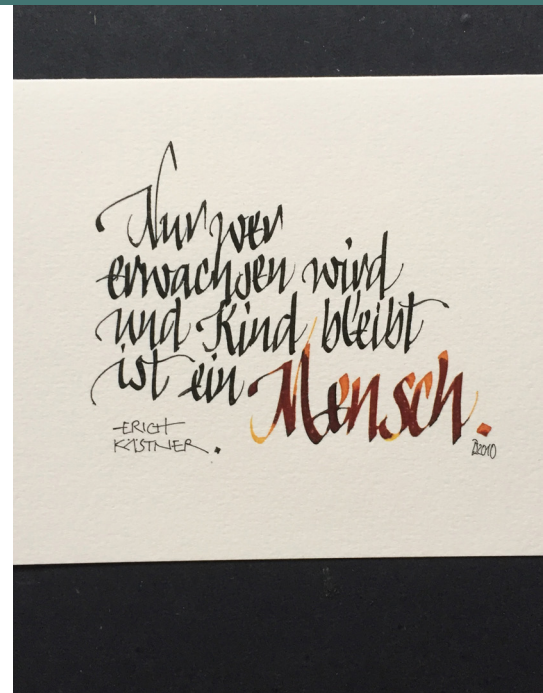 Nur wer
erwachsen wird
und Kind bleibt
ist ein Mensch.
ERICH
KÄSTNER.
2010